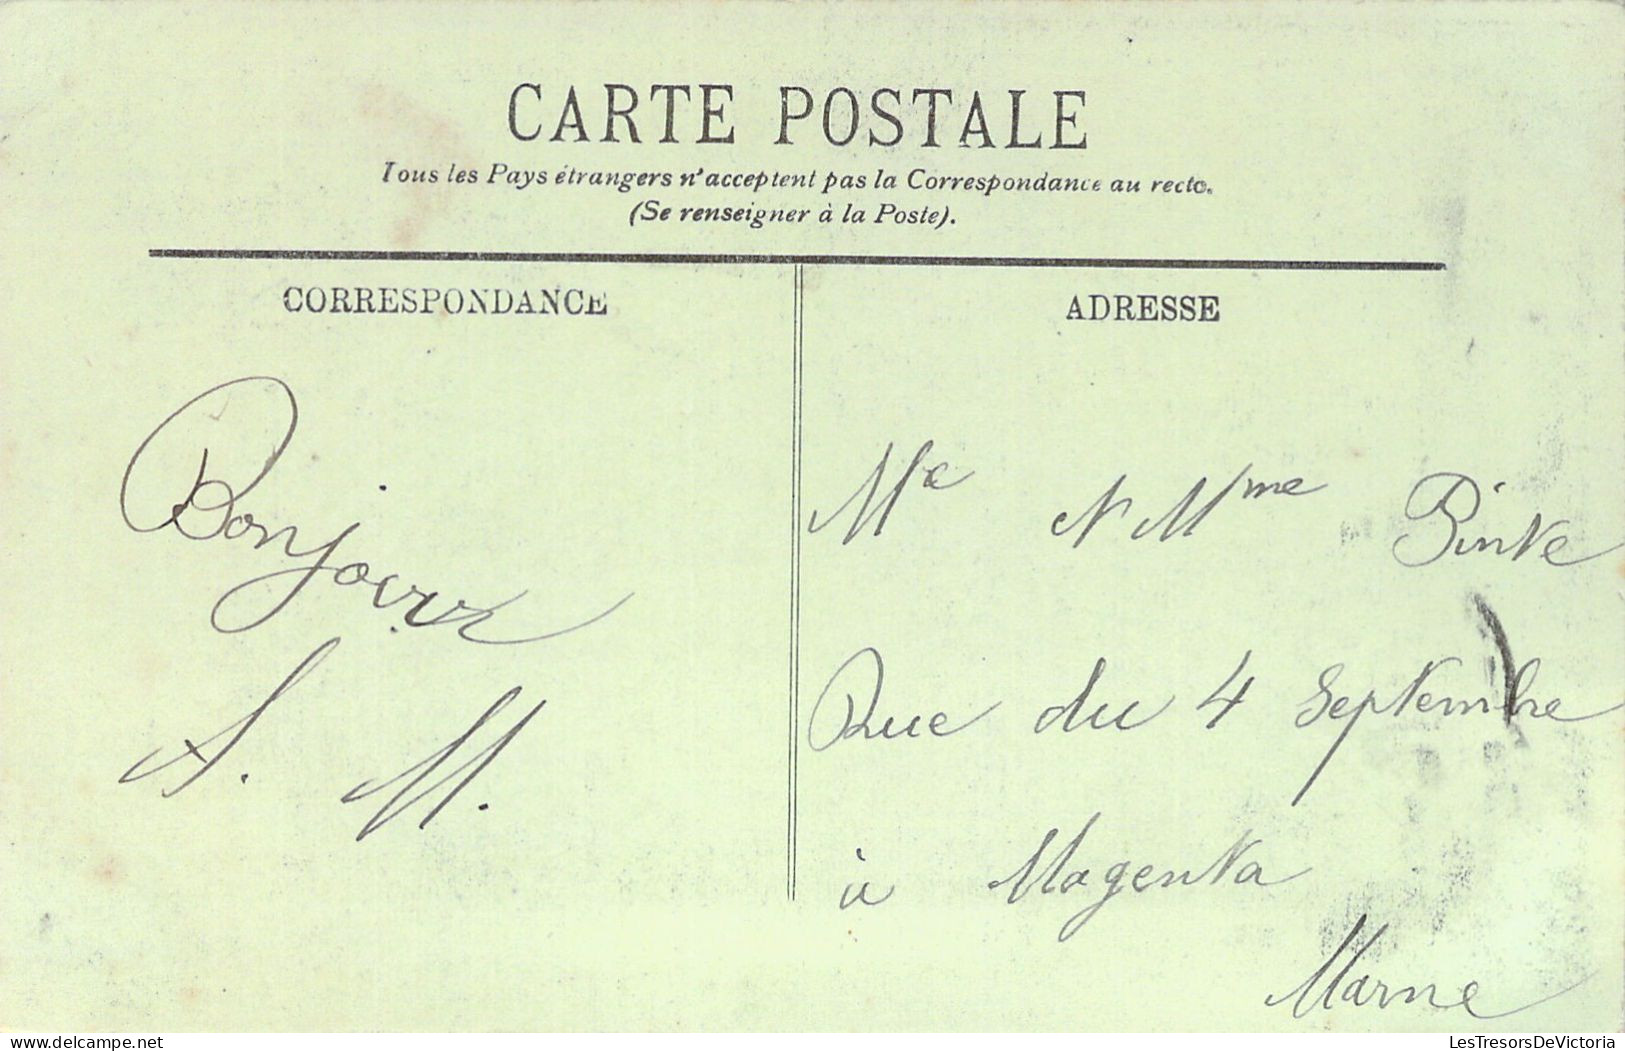 CARTE POSTALE
Tous les Pays étrangers n'acceptent pas la Correspondance au recto.
(Se renseigner à la Poste).
CORRESPONDANCE
ADRESSE
Bonjour
A. M.
Mme Pinte
Rue du 4 Septembre
à Magenta
Marne
LesTresorsDeVictoria